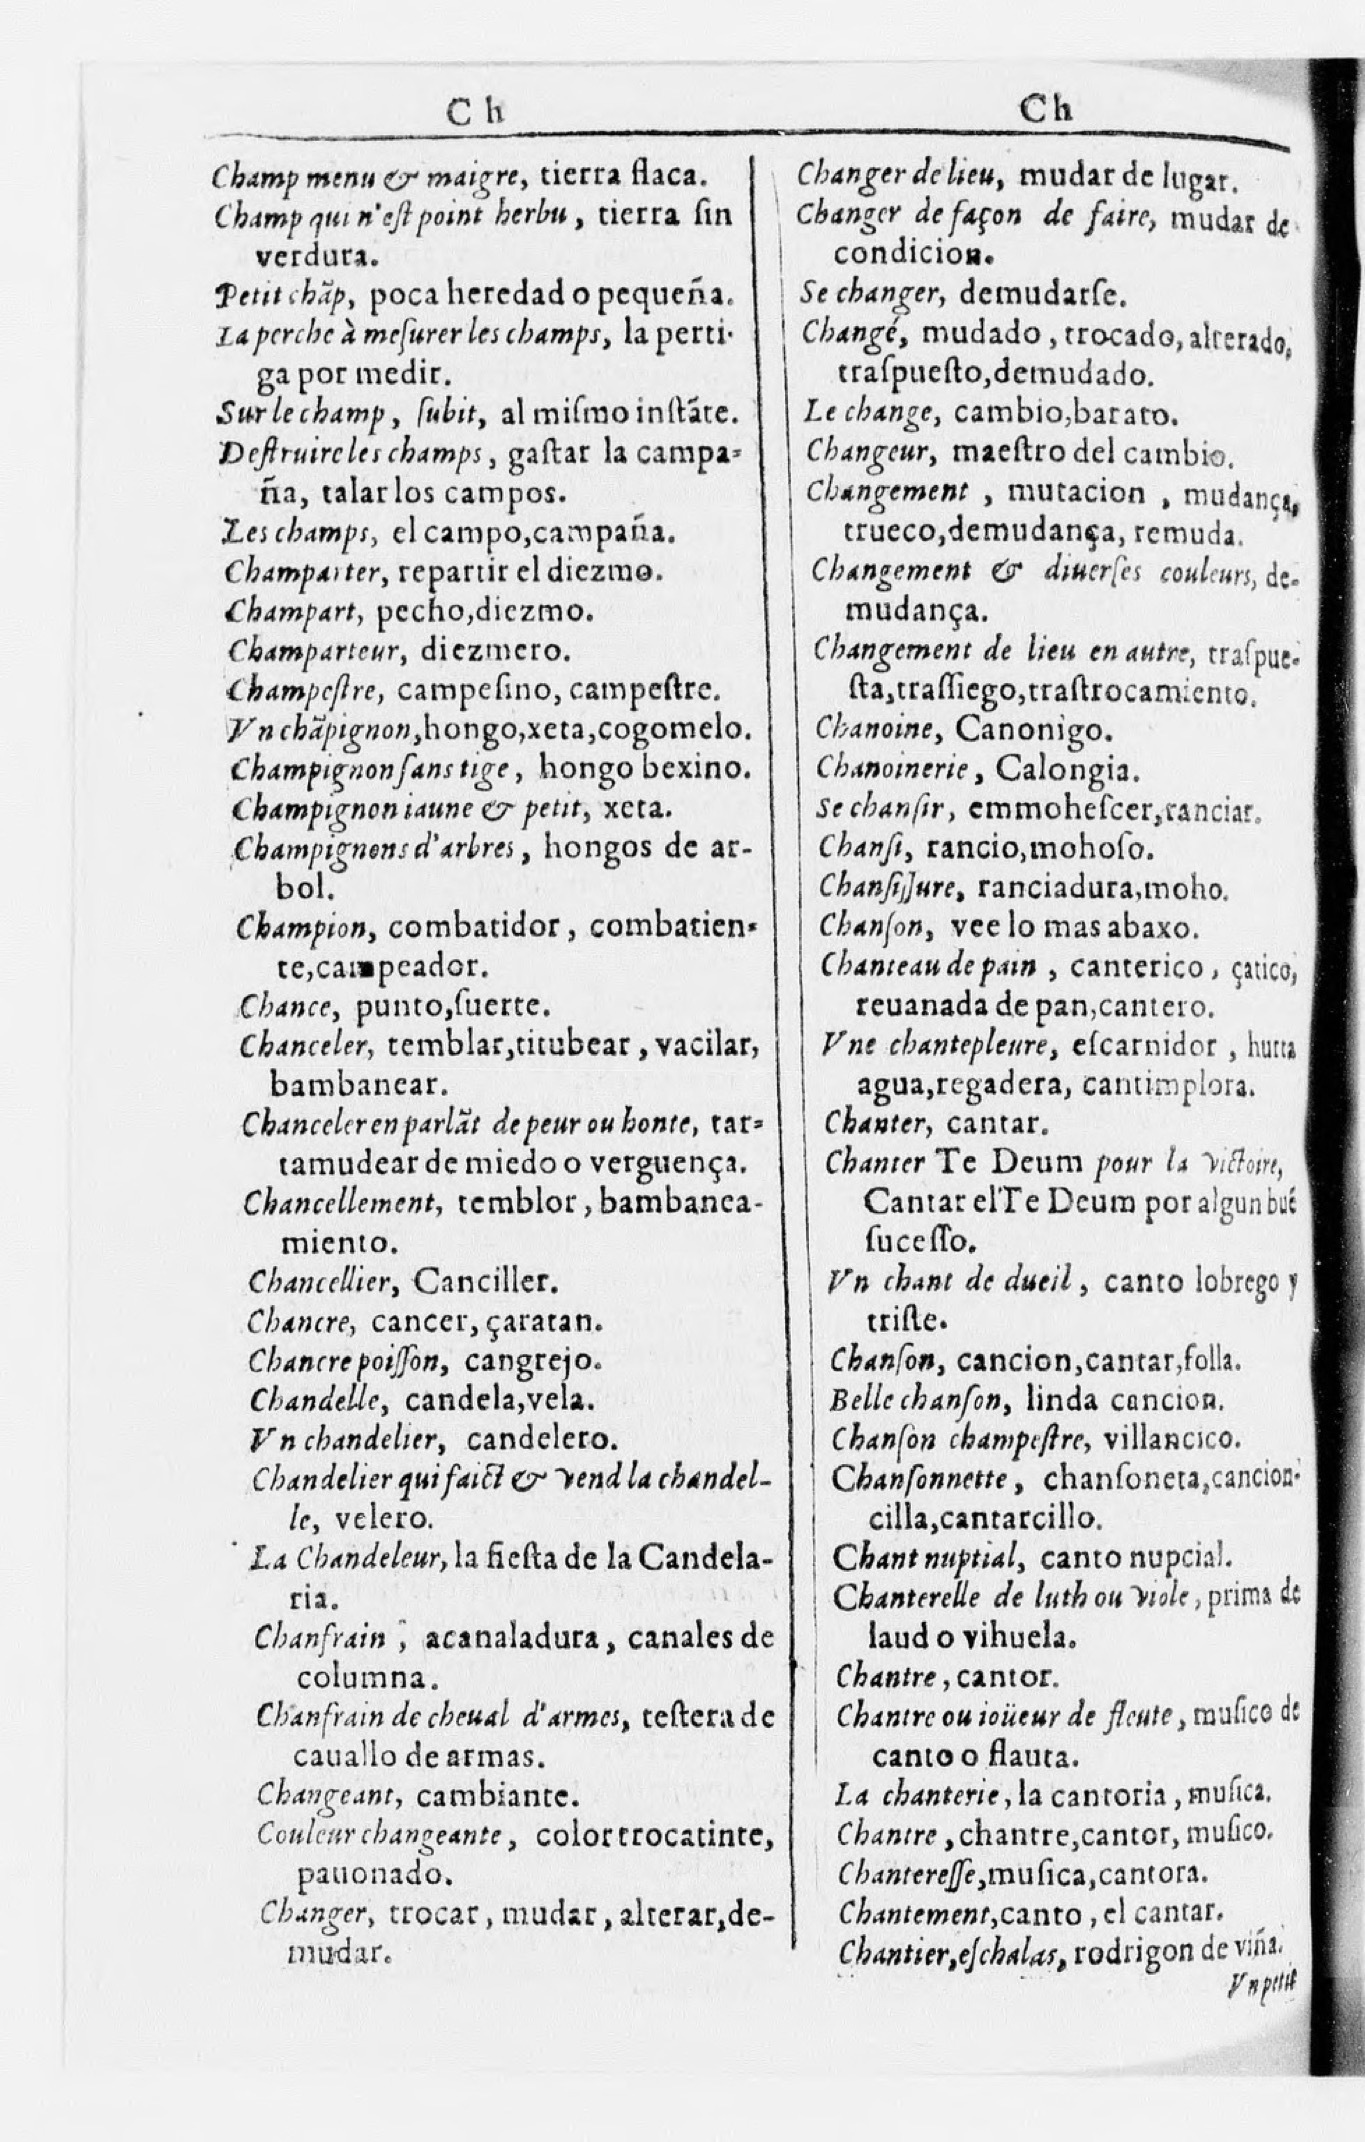 Ch
Champ menu & maigre, tierra flaca.
Champ qui n'eſt point herbu, tierra ſin
verdura.
Petit chãp, poca heredad o pequeña.
La perche à meſurer les champs, la perti-
ga por medir.
Sur le champ, ſubit, al miſmo inſtãte.
Deſtruire les champs, gaſtar la campa-
ña, talar los campos.
Les champs, el campo,campaña.
Champarter, repartir el diezmo.
Champart, pecho,diezmo.
Champarteur, diezmero.
Champeſtre, campeſino, campeſtre.
Vn chãpignon,hongo,xeta,cogomelo.
Champignon ſans tige, hongo bexino.
Champignon iaune & petit, xeta.
Champignons d'arbres, hongos de ar-
bol.
Champion, combatidor, combatien-
te,campeador.
Chance, punto,ſuerte.
Chanceler, temblar,titubear, vacilar,
bambanear.
Chanceler en parlãt de peur ou honte, tar-
tamudear de miedo o verguença.
Chancellement, temblor, bambanea-
miento.
Chancellier, Canciller.
Chancre, cancer, çaratan.
Chancre poiſſon, cangrejo.
Chandelle, candela,vela.
Vn chandelier, candelero.
Chandelier qui faict & vend la chandel-
le, velero.
La Chandeleur, la fieſta de la Candela-
ria.
Chanfrain, acanaladura, canales de
columna.
Chanfrain de cheual d'armes, teſtera de
cauallo de armas.
Changeant, cambiante.
Couleur changeante, color trocatinte,
pauonado.
Changer, trocar, mudar, alterar,de-
mudar.
Ch
Changer de lieu, mudar de lugar.
Changer de façon de faire, mudar de
condicion.
Se changer, demudarſe.
Changé, mudado, trocado, alterado,
traſpueſto,demudado.
Le change, cambio,barato.
Changeur, maeſtro del cambio.
Changement, mutacion, mudança,
trueco,demudança, remuda.
Changement & diuerſes couleurs, de-
mudança.
Changement de lieu en autre, traſpue-
ſta,traſſiego,traſtrocamiento.
Chanoine, Canonigo.
Chanoinerie, Calongia.
Se chanſir, emmoheſcer,ranciar.
Chanſi, rancio,mohoſo.
Chanſiſſure, ranciadura,moho.
Chanſon, vee lo mas abaxo.
Chanteau de pain, canterico, çatico,
reuanada de pan,cantero.
Vne chantepleure, eſcarnidor, hurta
agua,regadera, cantimplora.
Chanter, cantar.
Chanter Te Deum pour la victoire,
Cantar el Te Deum por algun buẽ
ſuceſſo.
Vn chant de dueil, canto lobrego y
triſte.
Chanſon, cancion,cantar,folla.
Belle chanſon, linda cancion.
Chanſon champeſtre, villancico.
Chanſonnette, chanſoneta,cancion-
cilla,cantarcillo.
Chant nuptial, canto nupcial.
Chanterelle de luth ou viole, prima de
laud o vihuela.
Chantre, cantor.
Chantre ou ioüeur de fleute, muſico de
canto o flauta.
La chanterie, la cantoria, muſica.
Chantre, chantre,cantor, muſico.
Chantereſſe,muſica,cantora.
Chantement,canto, el cantar.
Chantier,eſchalas, rodrigon de viña.
Vn petit